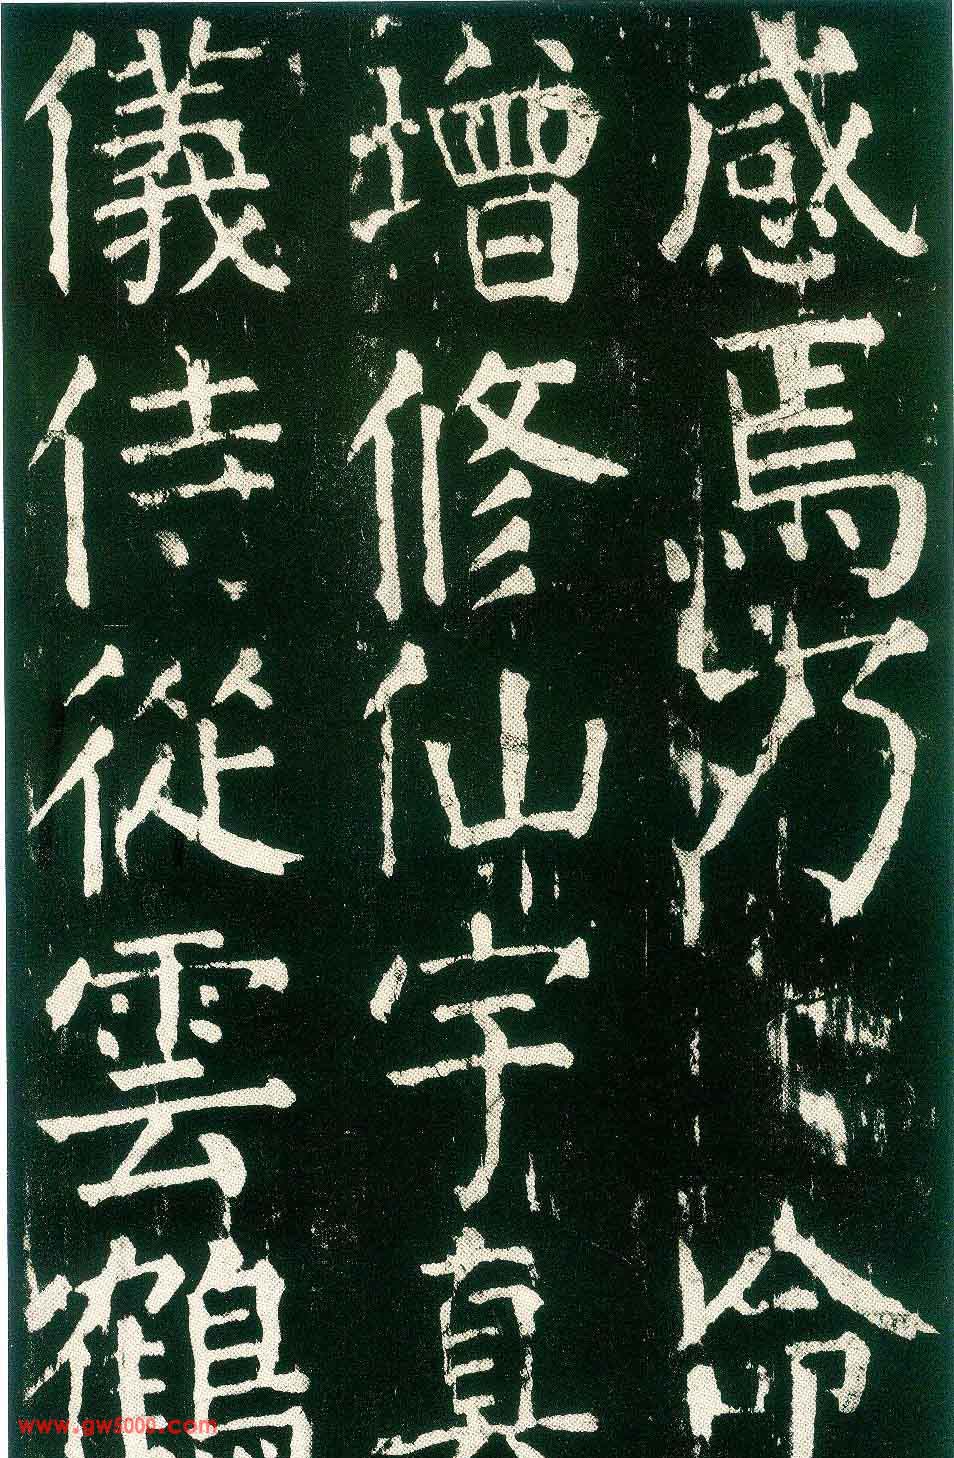 感焉乃命
增修仙宇真
儀侍從雲鶴
www.gw5000.com